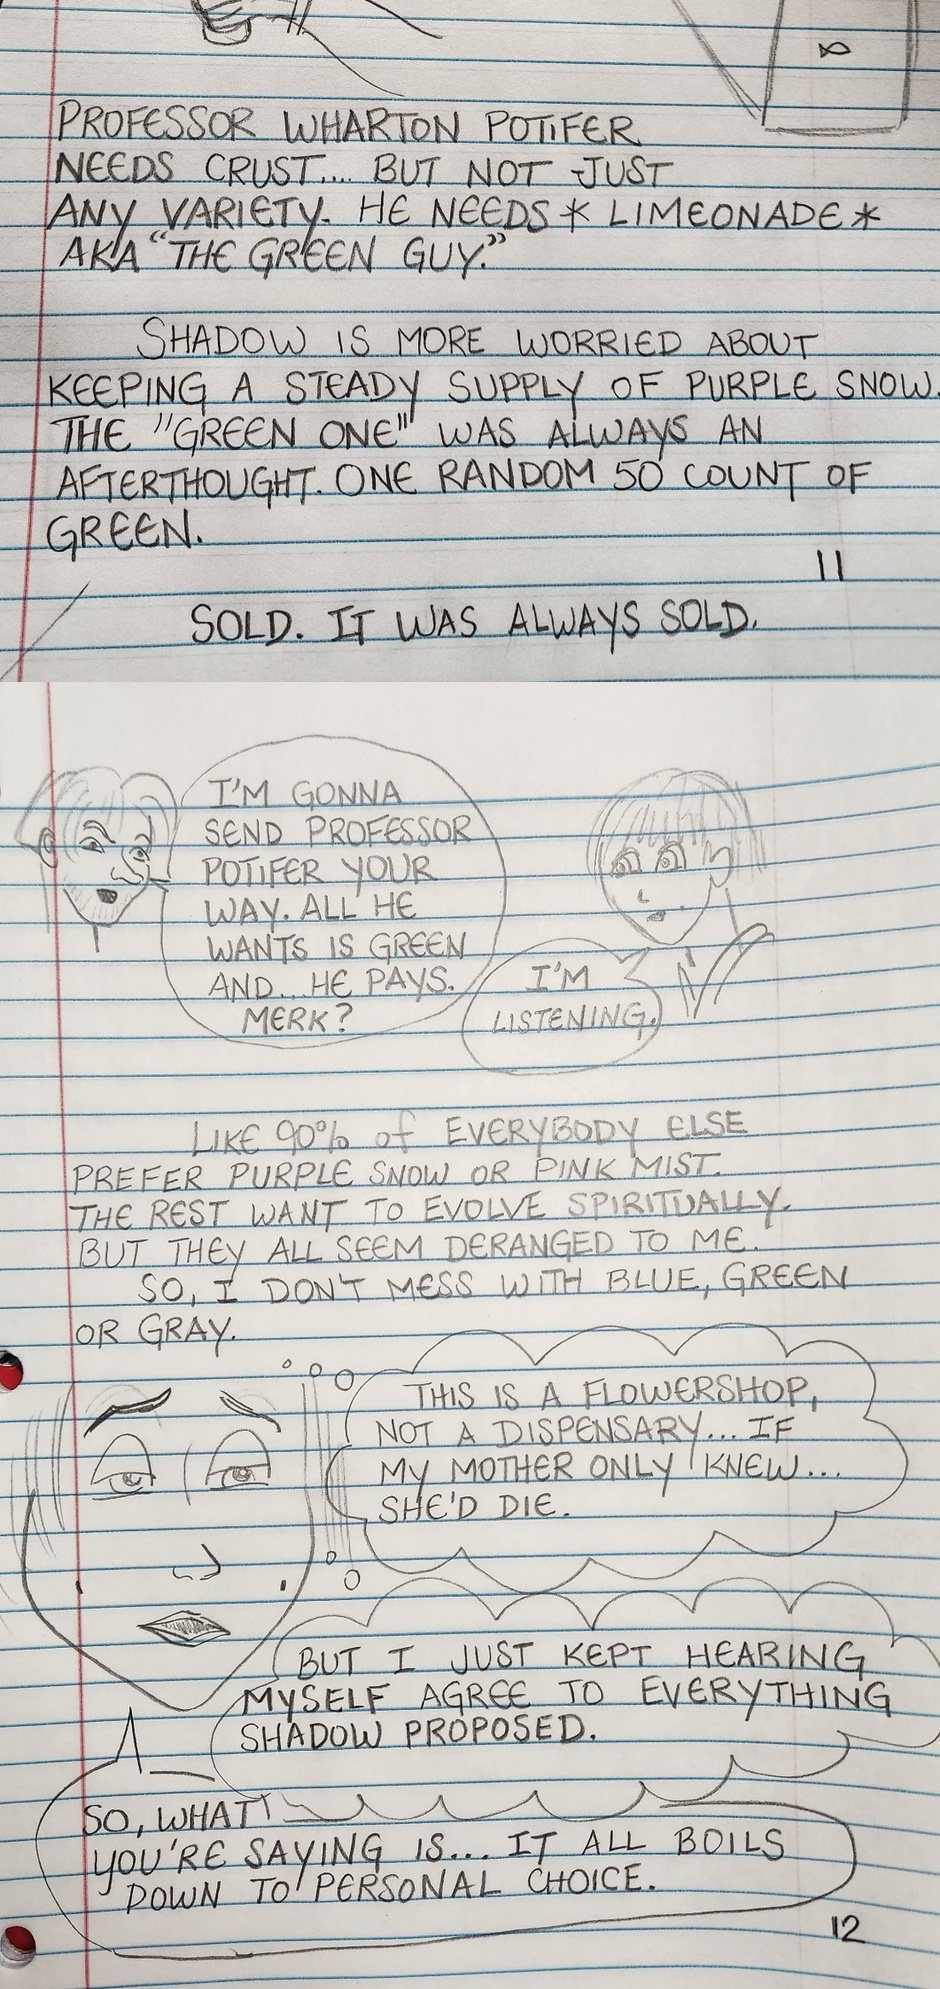 PROFESSOR WHARTON POTIFER
NEEDS CRUST.... BUT NOT JUST
ANY VARIETY. HE NEEDS * LIMEONADE *
AKA "THE GREEN GUY."
SHADOW IS MORE WORRIED ABOUT
KEEPING A STEADY SUPPLY OF PURPLE SNOW.
THE "GREEN ONE" WAS ALWAYS AN
AFTERTHOUGHT. ONE RANDOM 50 COUNT OF
GREEN.
11
SOLD. IT WAS ALWAYS SOLD.
I'M GONNA
SEND PROFESSOR
POTIFER YOUR
WAY. ALL HE
WANTS IS GREEN
AND... HE PAYS.
MERK?
I'M
LISTENING.
LIKE 90% of EVERYBODY ELSE
PREFER PURPLE SNOW OR PINK MIST.
THE REST WANT TO EVOLVE SPIRITUALLY.
BUT THEY ALL SEEM DERANGED TO ME.
SO, I DON'T MESS WITH BLUE, GREEN
OR GRAY.
THIS IS A FLOWERSHOP,
NOT A DISPENSARY... IF
MY MOTHER ONLY KNEW...
SHE'D DIE.
BUT I JUST KEPT HEARING
MYSELF AGREE TO EVERYTHING
SHADOW PROPOSED.
SO, WHAT
YOU'RE SAYING IS... IT ALL BOILS
DOWN TO PERSONAL CHOICE.
12